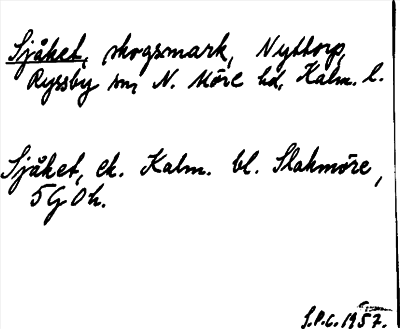 Sjåket, skogsmark, Nyttorp,
Ryssby sn, N. Möre hd, Kalm. l.
Sjåket, ek. Kalm. bl. Slakmöre,
5G0h.
S.P.C. 1957.